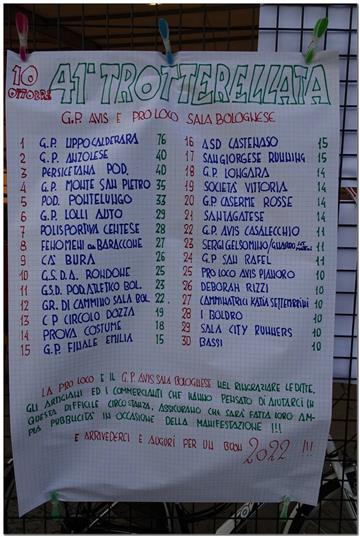 10 OTTOBRE 41ª TROTTERELLATA
G.P. AVIS E PRO LOCO SALA BOLOGNESE
1 G.P. LIPPO CALDERARA 76
2 G.P. ANZOLESE 40
3 PERSICETANA POD. 40
4 G.P. MONTE SAN PIETRO 35
5 POD. PONTELUNGO 33
6 G.P. LOLLI AUTO 29
7 POLISPORTIVA CENTESE 28
8 FENOMENI BARACCONE 27
9 CA' BURA 26
10 G.S.D.A. RONDONE 25
11 G.S.D. POD. ATLETICO BOL. 23
12 GR. DI CAMMINO SALA BOL. 22
13 C P CIRCOLO DOZZA 19
14 PROVA COSTUME 18
15 G.P. FINALE EMILIA 15
16 ASD CASTENASO 15
17 SANGIORGESE RUNNING 15
18 G.P. LONGARA 14
19 SOCIETÀ VITTORIA 14
20 G.P. CASERME ROSSE 14
21 SANTAGATESE 14
22 G.P. AVIS CASALECCHIO 11
23 SERGI GELSOMINO/ 11
24 G.P. SAN RAFEL 11
25 PRO LOCO AVIS PIANORO 10
26 DEBORAH RIZZI 10
27 CAMMINATRICI KATIA SETTEMBRINI 10
28 I BOLDRO 10
29 SALA CITY RUNNERS 10
30 BASSI 10
LA PRO LOCO E IL G.P. AVIS SALA BOLOGNESE NEL RINGRAZIARE LE DITTE,
GLI ARTIGIANI ED I COMMERCIANTI CHE HANNO PENSATO DI AIUTARCI IN
QUESTA DIFFICILE CIRCOSTANZA, ASSICURANO CHE SARÀ FATTA LORO AM-
PIA PUBBLICITÀ IN OCCASIONE DELLA MANIFESTAZIONE !!!
E ARRIVEDERCI E AUGURI PER UN BUON 2022 !!!